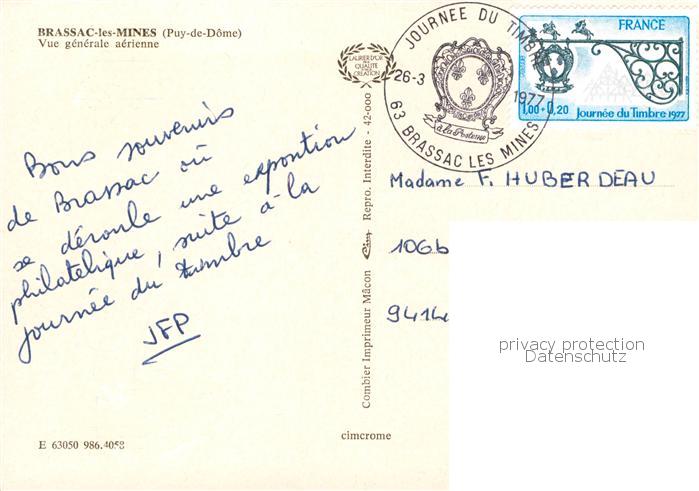 BRASSAC-les-MINES (Puy-de-Dôme)
Vue générale aérienne
LAURIER D'OR
DE
QUALITÉ
CRÉATION
JOURNEE DU TIMBRE
26-3
1977
à la Posterne
63 BRASSAC LES MINES
FRANCE
1,00+0,20 Journée du Timbre 1977
Bons souvenirs
de Brassac où
se déroule une expontion
philatelique, suite à la
journée du tumbre
JFP
Madame F. HUBERDEAU
106b
9414
privacy protection
Datenschutz
Combier Imprimeur Mâcon Cim Repro. Interdite - 42-000
cimcrome
E 63050 986.4058